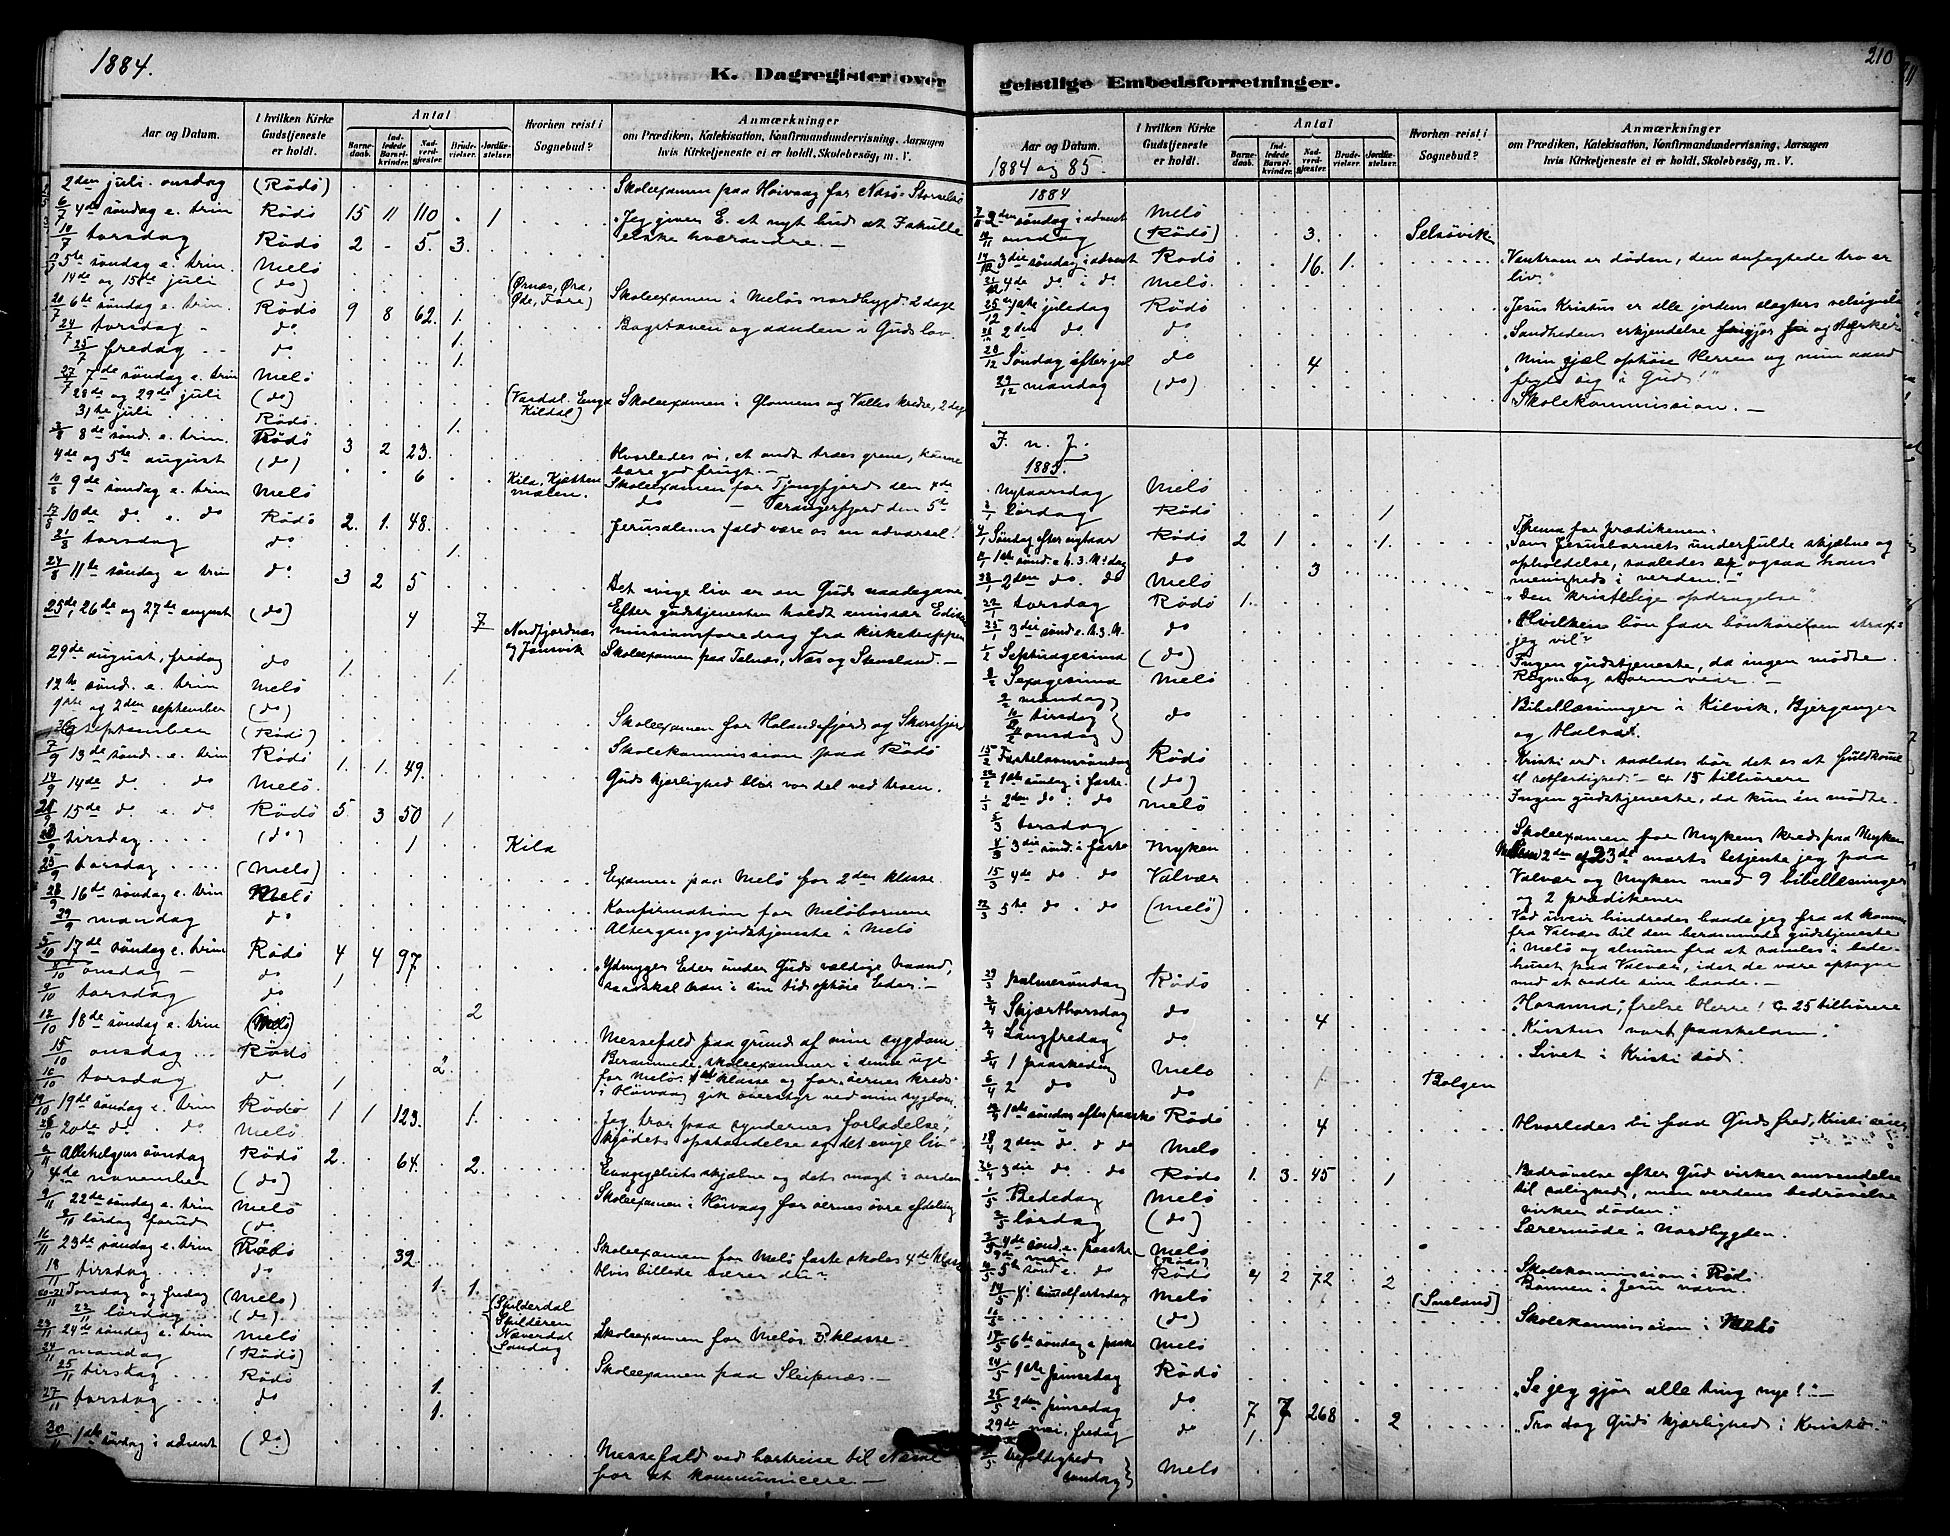 1884.
K. Dagregister over
Aar og Datum.
I hvilken Kirke Gudstjeneste er holdt.
Antal
Barnedaab.
Indledede Barselkvinder.
Nadverdgjæster.
Brudevielser.
Jordfæstelser.
Hvorhen reist i Sognebud?
Anmærkninger
om Prædiken, Katekisation, Konfirmandundervisning, Aarsagen
hvis Kirketjeneste ei er holdt, Skolebesøg, m. V.
2den juli. onsdag (Rödö) Skoleexamen paa Höivaag for Næsö-Storselsö
6/7 4de söndag e. trin Rödö 15 11 110 . 1 "Jeg giver E. et nyt bud at I skulle
10/7 torsdag Rödö 2 - 5. 3. elske hverandre. -
13/7 5te söndag e. trin. Melö
14de og 15de juli (do) (Ørnæs, Øra, Skoleexamen i Melös nordbygd. 2 dage
20/7 6te söndag e. trin. Rödö 9 8 62. 1. Bogstaven og aanden i Guds lov
24/7 torsdag - do 1.
25/7 fredag . . do 1.
27/7 7de söndag e. trin Melö
28de og 29de juli (do) Kildal) Skoleexamen i Glomens og Valles kredse, 2 dage
31te juli. Rödö. 1.
3/8 8de sönd. e. trin. Rödö 3 2 23. Hvorledes vi, et ondt træes grene, kunne
bære god frugt. -
4de og 5te august (do) 6 Kila, Skoleexamen for Tjongsfjord den 4de
10/8 9de söndag e. trin Melö do - Værangerfjord den 5te
17/8 10de do. e. do Rödö 2. 1. 48. Jerusalems fald være os en advarsel!
21/8 torsdag do 1.
24/8 11te söndag e. trin do. 3 2 5 Det evige liv er en Guds naadegave
Efter gudstjenesten holdt emissær
25de, 26de og 27de august (do) 4 7 Nordfjordnæs missionsforedrag fra kirketrappen
Skoleexamen paa Telnæs, Næs og Stensland. -
29de august, fredag do 1. 1.
12te sönd. e. trin Melö
1ste og 2den september (do) Skoleexamen for Holandsfjord og
3 september (Rödö) Skolekommission paa Rödö
7/9 13de sönd. e. trin Rödö 1. 1. 49. Guds kjærlighed blir vor del ved troen.
14/9 14de do. do Melö.
21/9 15de do. e. do Rödö 5 3 50 1
23/9 tirsdag (do) 1 Kila
25/9 torsdag (Melö) Examen paa Melö for 2den klasse.
28/9 16de söndag e. trin Melö Konfirmation for Meløbörnene
29/9 mandag do Altergangsgudstjeneste i Melö
5/10 17de söndag e. trin Rödö 4 4 97 "Ydmyger Eder under Guds vældige haand,
8/10 onsdag - do 1
9/10 torsdag do 2
12/10 18de söndag e. trin (Melö) Messefald paa grund af min sygdom.
15/10 onsdag Rödö 2. Berammede skoleexaminer i denne uge
for Melös 1ste klasse og for öernes kreds
16/10 torsdag do 1
19/10 19de söndag e. trin Rödö 1 1 123 1. "Jeg tror paa syndernes forladelse,
26/10 20de do. do Melö. kjödets opstandelse og det evige liv"
2/11 Allehelgens söndag Rödö 2. 64. 2. Evangeliets skjæbne og dets magt i verden
4de november (do) Skoleexamen i Höivaag for öernes övre afdeling
9/11 22de söndag e. trin Melö
lördag forud (do)
16/11 23de söndag e. trin Rödö 32. Skoleexamen for Melö faste skoles 4de klasse
Hvis billede bærer du?
18/11 tirsdag do 1. 1.
20-21 Torsdag og fredag (Melö)
22/11 lördag (do) Skoleexamen for Melös klasse
23/11 24de söndag e. trin Melö
24/11 mandag (Rödö) Skoleexamen paa Sleipnæs. -
25/11 tirsdag Rödö 1.
27/11 torsdag do 1.
30/11 1ste söndag i advent (do) Messefald ved bortreise til
for at kommunicere. -
210
geistlige Embedsforretninger.
Aar og Datum.
I hvilken Kirke Gudstjeneste er holdt.
Antal
Barnedaab.
Indledede Barselkvinder.
Nadverdgjæster.
Brudevielser.
Jordfæstelser.
Hvorhen reist i Sognebud?
Anmærkninger
om Prædiken, Katekisation, Konfirmandundervisning, Aarsagen
hvis Kirketjeneste ei er holdt, Skolebesøg, m. V.
1884 og 85.
1884
2den söndag i advent Melö
onsdag (Rödö) 3. Selsövik
14/12 3die söndag i advent Rödö 16. 1. "Vantroen er döden, den anfegtede tro er
liv."
21/12 4de do i do Melö.
25/12 1ste juledag Rödö "Jesus Kristus er alle jordens slægters velsignelse
2den do. do "Sandhedens erkjendelse og
28/12 Söndag efter jul do 4 "Min sjæl ophöie Herren og min aand
fryde sig i Gud!"
29/12 mandag (do) Skolekommission. -
J. n. J.
1885.
Nytaarsdag Melö
lördag Rödö 1
4/1 Söndag efter nytaar Rödö 2 1 1. Thema for prædikenen:
"Som Jesusbarnets underfulde skjæbne og
1ste sönd. e. h. 3. K. dag do 3 opholdelse, saaledes ogsaa hans
menigheds i verden."
2den do. do Melö "Den kristelige opdragelse."
22/1 torsdag Rödö 1.
25/1 3die sönd. e. h. 3. K. do "Hvilken bön faar bönhörelsen strax:
jeg vil?"
1/2 Septuagesima (do) Ingen gudstjeneste, da ingen mödte.
Regn og stormveir -
8/2 Sexagesima Melö
mandag
tirsdag do Bibellæsninger i Kilvik, Bjerganger
onsdag
15/2 Fastelavnssöndag Rödö Kristi ord. saaledes bör det os at fuldkomme
al retfærdighed. - 15 tilhörere
22/2 1ste söndag i faste (do) Ingen gudstjeneste, da kun én mödte.
1/3 2den do i do Melö
5/3 torsdag Skoleexamen for Mykens kreds paa Myken
3die sönd. i faste Myken 23de marts betjente jeg paa
15/3 4de do do Valvær Valvær og Myken med 9 bibellæsninger
og 2 prædikener
22/3 5te do. do (Melö) Ved uveir hindredes baade jeg fra at komme
fra Valvær til den berammede gudstjeneste
i Melö og almuen fra at samles i bede-
huset paa Valvær, idet de vare optagne
med at redde sine baade. -
29/3 palmesöndag Rödö "Hosanna, frelse Herre! 25 tilhörere
2/4 Skjærthorsdag do 4 "Kristus vort paaskelam."
3/4 Langfredag do "Livet i Kristi död."
5/4 1 paaskedag Melö
6/4 2 do do Bolgen
1ste söndag efter paaske Rödö 4 Hvorledes vi paa Guds fred, Kristi
2den do. do Melö
3die do. do Rödö 1. 3. 45 1 "Bedrövelse efter Gud virker omvendelse
til salighed, men verdens bedrövelse
virker döden."
1/5 Bededag Melö
lördag (do) Læremöde i Nordbygden.
3/5 4de sönd. e. paaske Melö
(Rödö) Skolekommission i Rödö
5te sönd e. do Rödö 4 2 72 2 Bönnen i Jesu navn.
14/5 Kr. himmelfartsdag Melö
(do) Skolekommission i Melö
17/5 6te söndag e paaske Melö
24/5 1ste pinsedag Rödö "Se jeg gjör alle ting nye!" -
25/5 2den pinsedag do. 7 7 268 2 "Tro dog Guds kjærlighed i Kristo."
29de mai, fredag do 1.
31/5 trefoldigheds
söndag Melö